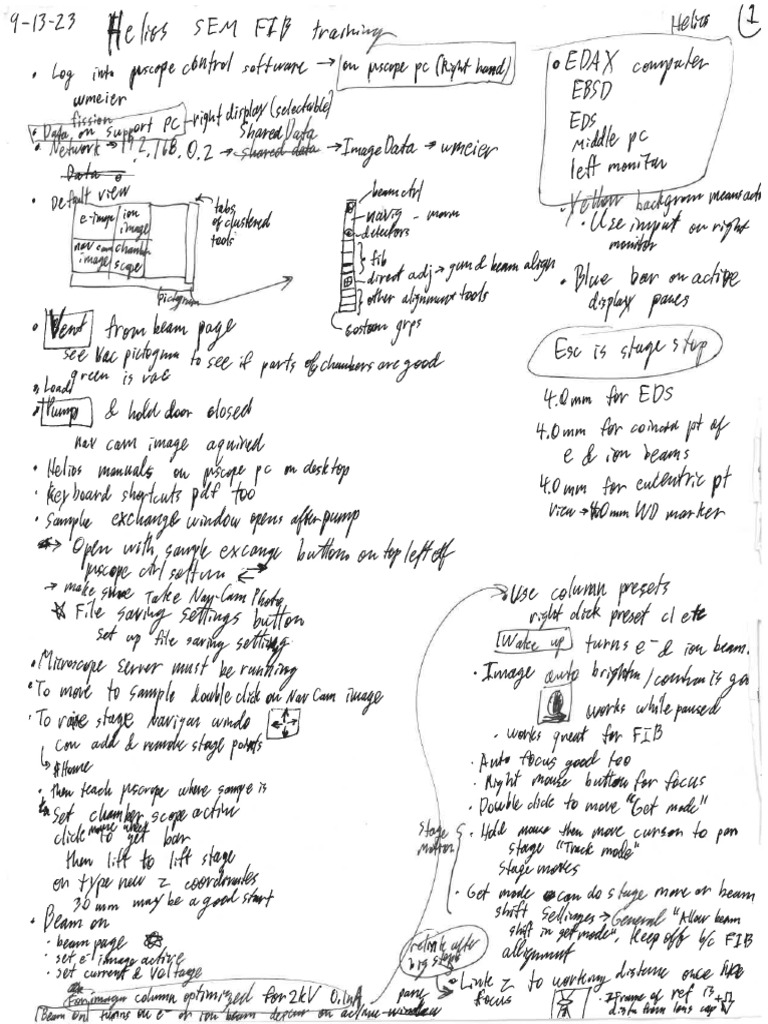 9-13-23 Helios SEM FIB training
Helios 1
• Log into μscope control software → on μscope pc (Right hand)
wmeier
fission
• Data on support PC - right display (selectable)
Shared Data
• Network → 192.168.0.2 → shared data → ImageData → wmeier
Data
• Default view
e-image
ion image
nav cam image
chamber scope
tabs of clustered tools
pictgram
beam ctrl
navig - mowm
detectors
fib
direct adj → gun & beam align
other alignment tools
custom grps
• Vent from beam page
see vac pictogram to see if parts of chambers are good
green is vac
• Load
• Pump & hold door closed
nav cam image aquired
• Helios manuals on μscope pc on desktop
• Keyboard shortcuts pdf too
• Sample exchange window opens after pump
→ Open with sample excange buttons on top left off
μscope ctrl softwn
→ make sure Take Nav-Cam Photo
☆ File saving settings button
set up file saving setting
• Microscope server must be running
• To move to sample double click on NavCam image
• To raise stage Navigan windo
can add & remove stage points
↳ #Home
• then teach μscrope where sample is
Set chamber scope active
click mouse wheel to get bar
then lift to lift stage
or type new z coordinates
30 mm may be a good start
• Beam on
• beam page
• set e- image active
• set current & voltage
column optimized for 2kV 0.1nA
Beam on turns on e- or ion beam depen on active window
• EDAX computer
EBSD
EDS
middle pc
left monitor
• Yellow backgroun means acti
• Use input on right
monitor
• Blue bar on active
display panes
Esc is stage stop
4.0mm for EDS
4.0mm for coincid pt of
e & ion beams
4.0mm for eucentric pt
view → 4.0mm WD marker
→ Use column presets
right click preset cl etc
Wake up turns e- & ion beam.
• Image auto brightn/contran is goo
works while paused
• works great for FIB
• Auto focus good too
• Right mouse button for focus
• Double click to move "Get mode"
Stage motion
• Hold mouse then move cursor to pan
stage "Track mode"
stage moves
• Get mode can do stage move or beam
shift Settinges → General "Allow beam
shift in get mode", Keep off b/c FIB
alignment
relink after big steps
→ Link Z to working distance once
focus
• z frame of ref is
distn from lens cap